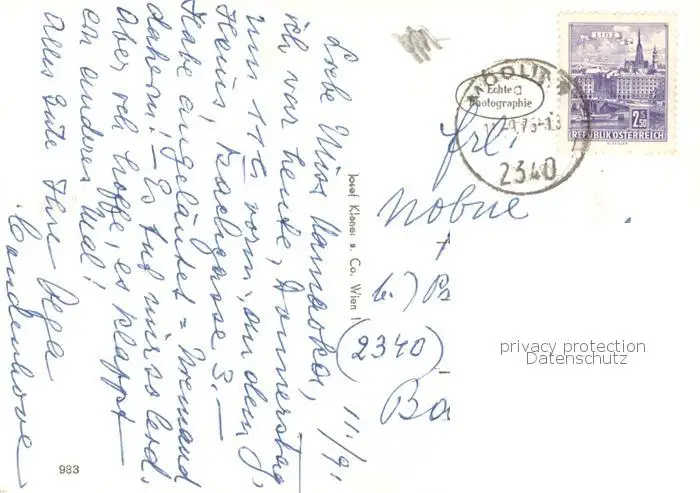 Liebe Miss
ich war heute, Donnerstag,
um 11h vorm. an dem
Heim, Bachgasse 3. —
Habe angeläutet = Niemand
daheim! — Es tut mir so leid.
Aber ich hoffe, es klappt
ein anderes Mal!
Alles Gute Ihre
Coudenhove
11./9.
983
Josef Klaner u. Co. Wien I
Echte
Photographie
2340
LINZ
2.50
REPUBLIK ÖSTERREICH
Frl.
(2340)
privacy protection
Datenschutz